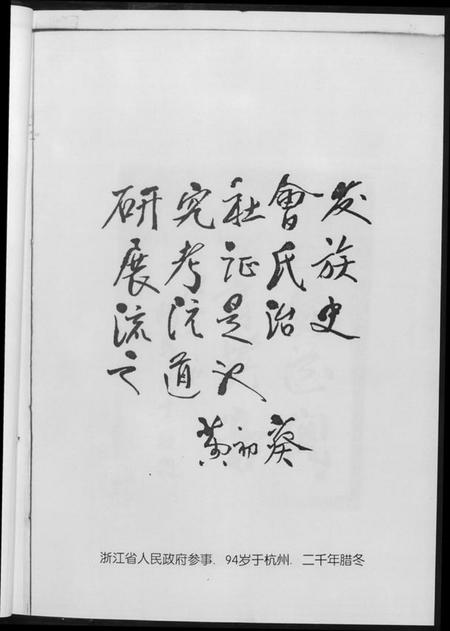 研究社會发
展考证氏族
流沅是治史
之道也
黄初葵
浙江省人民政府参事．94岁于杭州．二千年腊冬